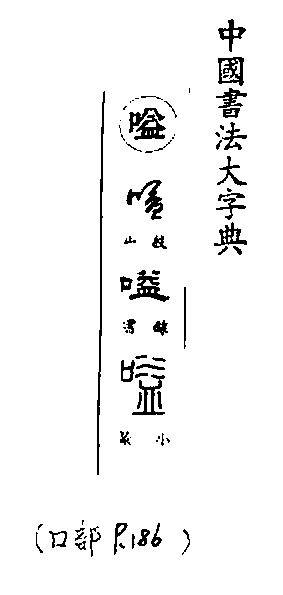 中國書法大字典
嗌
嗌
枝山
嗌
嗌
小篆
(口部 P.186)